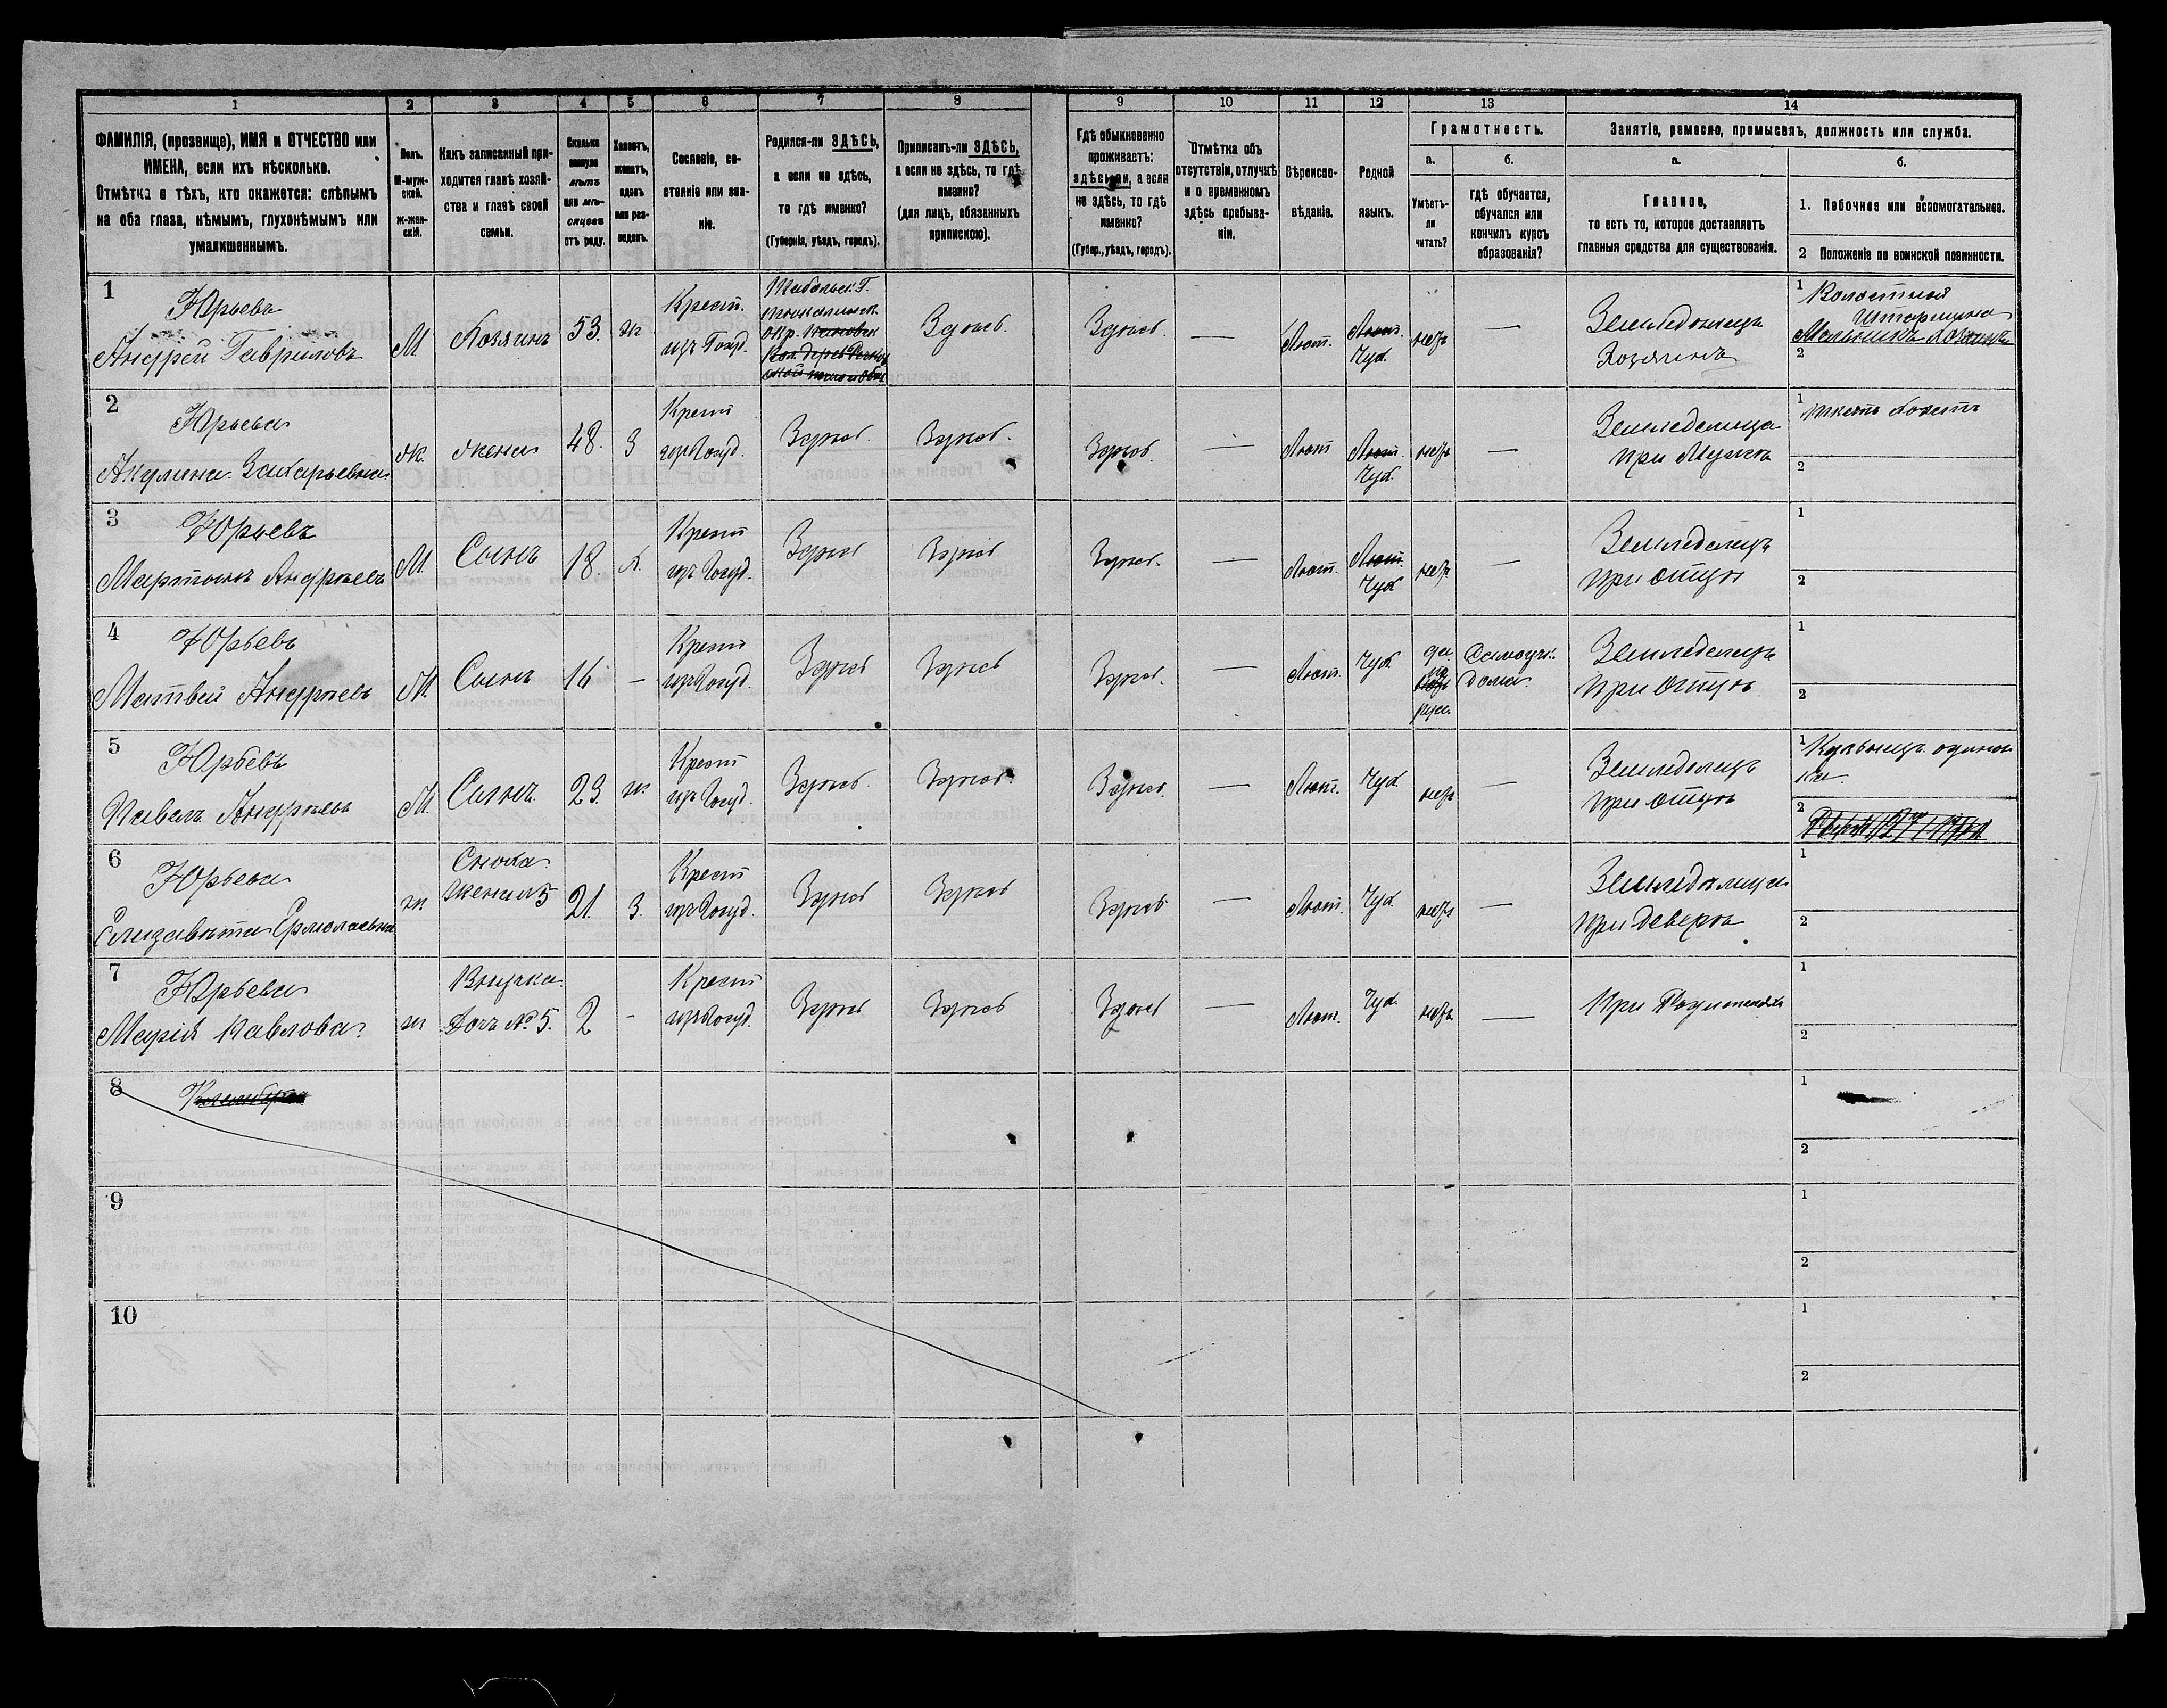 1 2 3 4 5 6 7 8 9 10 11 12 13 14
ФАМИЛІЯ, (прозвище), ИМЯ и ОТЧЕСТВО или
ИМЕНА, если ихъ нѣсколько.
Отмѣтка о тѣхъ, кто окажется: слѣпымъ
на оба глаза, нѣмымъ, глухонѣмымъ или
умалишеннымъ.
Полъ.
М-муж-
ской.
ж-жен-
скій.
Какъ записанный при-
ходится главѣ хозяй-
ства и главѣ своей
семьи.
Сколько
минуло
лѣтъ
или мѣ-
сяцевъ
отъ роду.
Холостъ,
женатъ,
вдовъ
или раз-
веденъ.
Сословіе, со-
стояніе или зва-
ніе.
Родился-ли ЗДѢСЬ,
а если не здѣсь,
то гдѣ именно?
(Губернія, уѣздъ, городъ).
Приписанъ-ли ЗДѢСЬ,
а если не здѣсь, то гдѣ
именно?
(для лицъ, обязанныхъ
припискою).
Гдѣ обыкновенно
проживаетъ:
здѣсь-ли, а если
не здѣсь, то гдѣ
именно?
(Губер., уѣздъ, городъ).
Отмѣтка объ
отсутствіи, отлучкѣ
и о временномъ
здѣсь пребыва-
ніи.
Вѣроиспо-
вѣданіе.
Родной
языкъ.
Грамотность.
а.
Умѣетъ-
ли
читать?
б.
гдѣ обучается,
обучался или
кончилъ курсъ
образованія?
Занятіе, ремесло, промыселъ, должность или служба.
а.
Главное,
то есть то, которое доставляетъ
главныя средства для существованія.
б.
1. Побочное или вспомогательное.
2 Положеніе по воинской повинности.
1
Юрьевъ
Андрей Гавриловъ
М
Хозяинъ
53.
ж
Крест.
изъ Госуд.
Тобольск. Г.
окр.
Здѣсь.
Здѣсь.
—
Лют.
Лют.
Чух.
нѣтъ
—
Земледѣлецъ
Хозяинъ
1 Волостной
Старшина
Мельникъ хозяинъ
2
2
Юрьева
Акулина Захарьевна
ж.
жена
48.
З
Крест
изъ Госуд.
Здѣсь.
Здѣсь.
Здѣсь.
—
Лют
Лют.
Чух.
нѣтъ
—
Земледелица
при Мужѣ
1 Ткетъ холстъ
2
3
Юрьевъ
Мартынъ Андреевъ
М.
Сынъ
18.
х.
Крест
изъ Госуд.
Здѣсь
Здѣсь
Здѣсь.
—
Лют.
Лют.
Чух
нѣтъ
—
Земледелецъ
при отцѣ
1
2
4
Юрьевъ
Матвей Андреевъ
М
Сынъ
16
—
Крест
изъ Госуд.
Здѣсь
Здѣсь
Здѣсь.
—
Лют.
Чух.
да
по
русс.
Самоучк.
дома.
Земледелецъ
при отцѣ
1
2
5
Юрьевъ
Павелъ Андреевъ
М.
Сынъ.
23.
ж
Крест
изъ Госуд.
Здѣсь.
Здѣсь.
Здѣсь.
—
Лют.
Чух.
нѣтъ
—
Земледелецъ
при отцѣ
1 Кузнецъ одиноч
ка
2
6
Юрьева
Елизавета Ермолаевна
ж.
Сноха
жена № 5
21.
З.
Крест
изъ Госуд.
Здѣсь
Здѣсь
Здѣсь
—
Лют.
Чух.
нѣтъ
—
Земледѣлица
при свекрѣ
1
2
7
Юрьева
Марія Павлова.
ж
Внучка
Дочь № 5.
2
-
Крест
изъ Госуд.
Здѣсь
Здѣсь
Здѣсь
—
Лют.
Чух.
нѣтъ.
—
При Родителяхъ
1
2
8
1
2
9
1
2
10
1
2